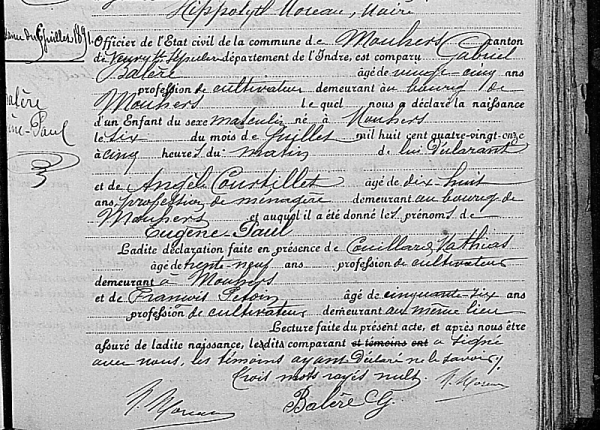 Hippolyte Moreau, Maire
Officier de l'Etat civil de la commune de Mouhers canton
de Neuvy St Sépulcre département de l'Indre, est comparu Gabriel
Balère âgé de vingt-cinq ans
profession de cultivateur demeurant au bourg de
Mouhers lequel nous a déclaré la naissance
d'un Enfant du sexe masculin né à Mouhers
le six du mois de Juillet mil huit cent quatre-vingt-onze
à cinq heures du matin de lui Déclarant
et de Angèle Courtillet âgé de dix huit
ans, profession de ménagère demeurant au bourg de
Mouhers et auquel il a été donné les prénoms de
Eugène-Paul
Ladite déclaration faite en présence de Couillard Mathias
âgé de trente neuf ans profession de cultivateur
demeurant à Mouhers
et de François âgé de cinquante-six ans
profession de cultivateur demeurant au même lieu
Lecture faite du présent acte, et après nous être
assuré de ladite naissance, lesdits comparant et témoins ont a signé
avec nous, les témoins ayant déclaré ne le savoir.
Trois mots rayés nuls.
Moreau
Balère G.
Moreau
Juillet 1891
Balère
Eugène-Paul